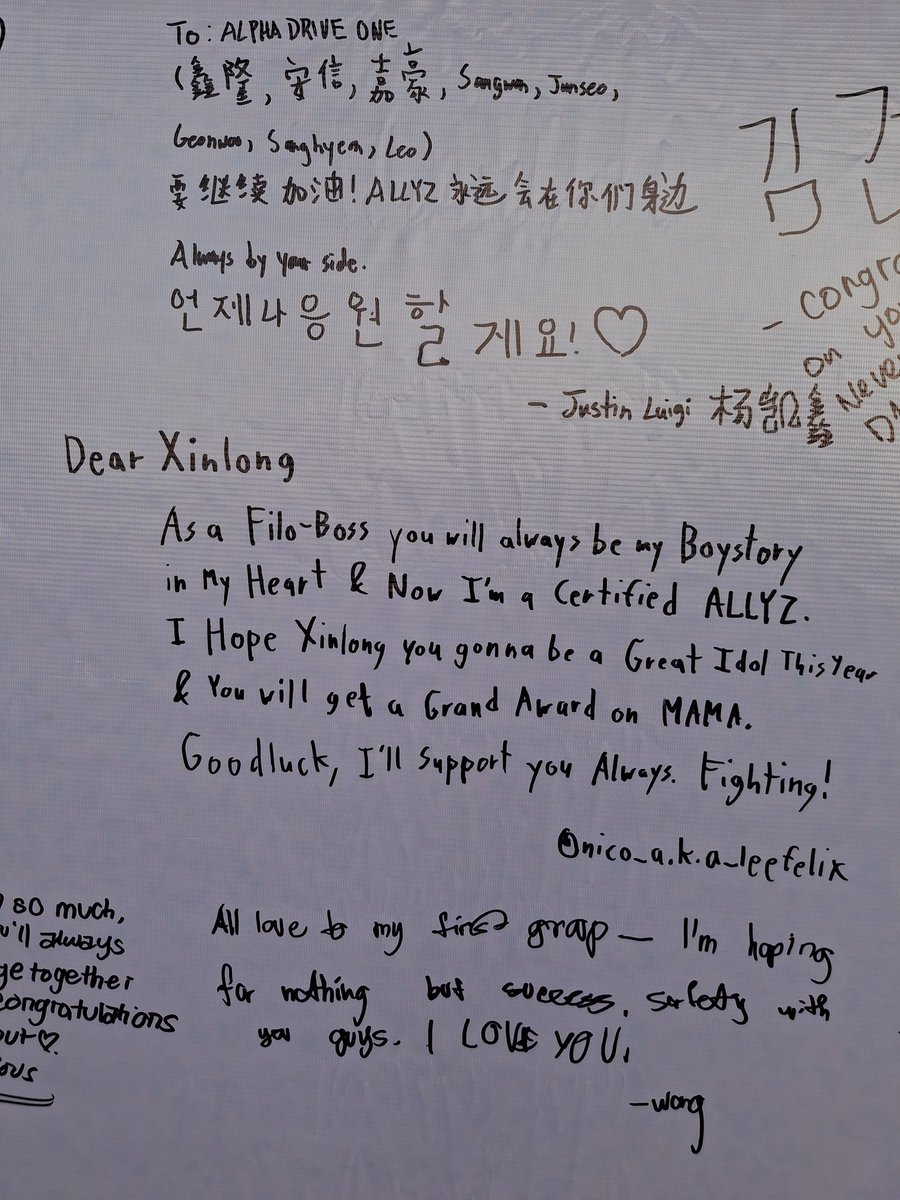 To: ALPHA DRIVE ONE
(鑫隆, 安信, 嘉豪, Sangwon, Junseo,
Geonwoo, Sanghyeon, Leo)
要继续加油! ALLYZ 永远会在你们身边
Always by your side.
언제나 응원할게요! ♡
- Justin Luigi 杨凯鑫
김
- congra
on yo
Neve
Dear Xinlong
As a Filo-Boss you will always be my Boystory
in My Heart & Now I'm a Certified ALLYZ.
I Hope Xinlong you gonna be a Great Idol This Year
& You will get a Grand Award on MAMA.
Goodluck, I'll support you Always. Fighting!
@nico_a.k.a_leefelix
so much,
'll always
together
congratulations
♡.
All love to my first group — I'm hoping
for nothing but success, safety with
you guys. I LOVE YOU.
-wong